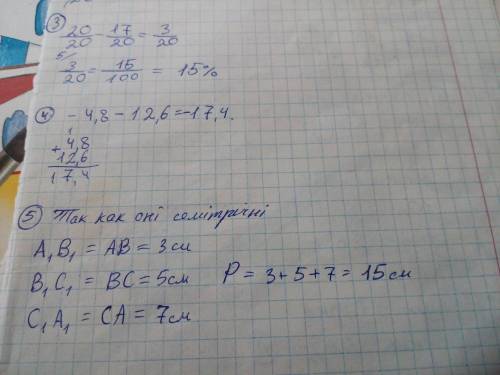 ③
20/20 - 17/20 = 3/20
5/ 3/20 = 15/100 = 15%
④ - 4,8 - 12,6 = -17,4.
1
+ 4,8
12,6
17,4
⑤ Так как оні семітрічні
A₁B₁ = AB = 3 см
B₁C₁ = BC = 5 см P = 3+5+7 = 15 см
C₁A₁ = CA = 7 см